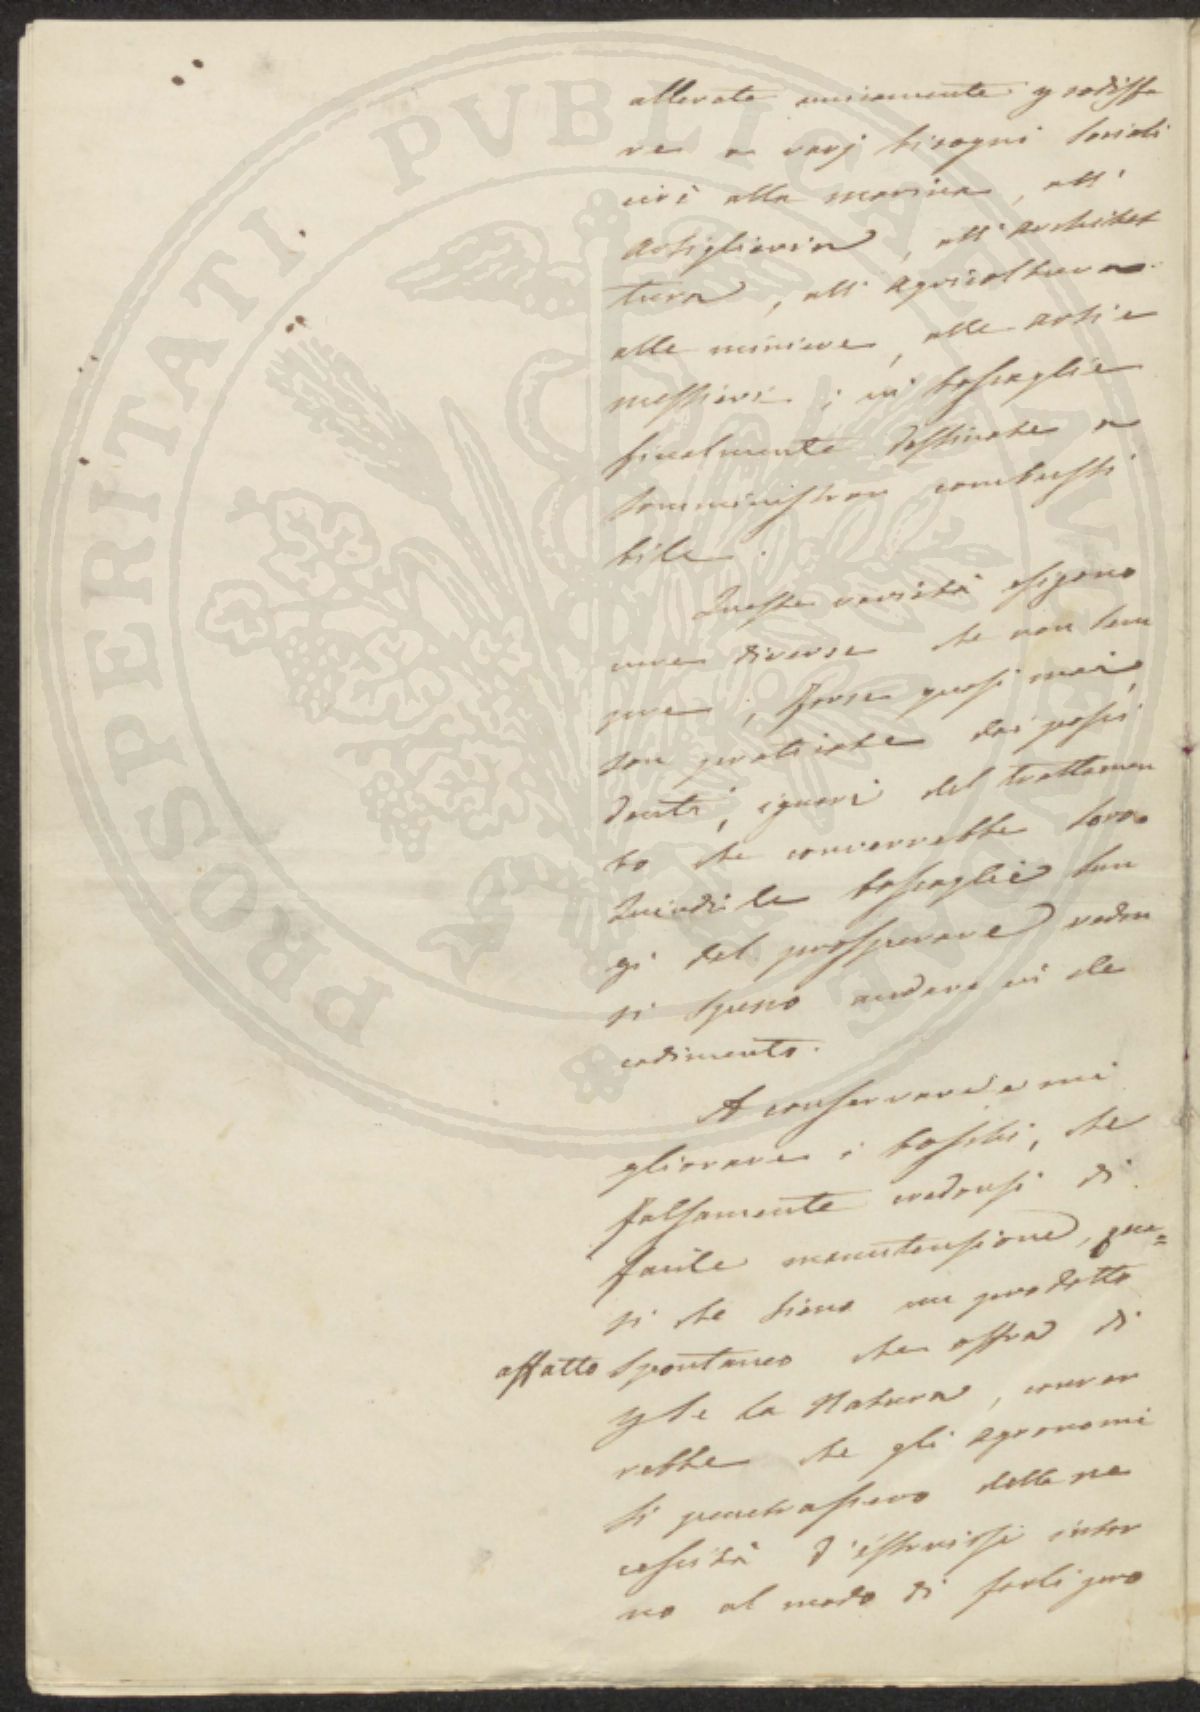 allevate unicamente p sodisfa
re a varj bisogni sociali
cioè alla marina, all'
Artiglieria, all'Architet
tura, all'Agricoltura
alle miniere, alle Arti e
mestieri; in boscaglie
finalmente destinate a
somministrar combusti
bile.
Queste varietà esigono
cure diverse che non sem
pre, forse quasi mai,
son praticate dai possi
denti, ignari del trattamen
to che converrebbe loro.
Quindi le boscaglie lun
gi dal prosperare vedon
si spesso andare in de
cadimento.
A conservare e mi
gliorare i boschi, che
falsamente credonsi di
facile manutensione, qua=
si che siano un prodotto
affatto spontaneo che offra di
p se la Natura, conver
rebbe che gli Agronomi
si penetrassero della ne
cessità d'istruirsi intor
no al modo di farli pro
PROSPERITATI PVBLICAE AVGENDAE